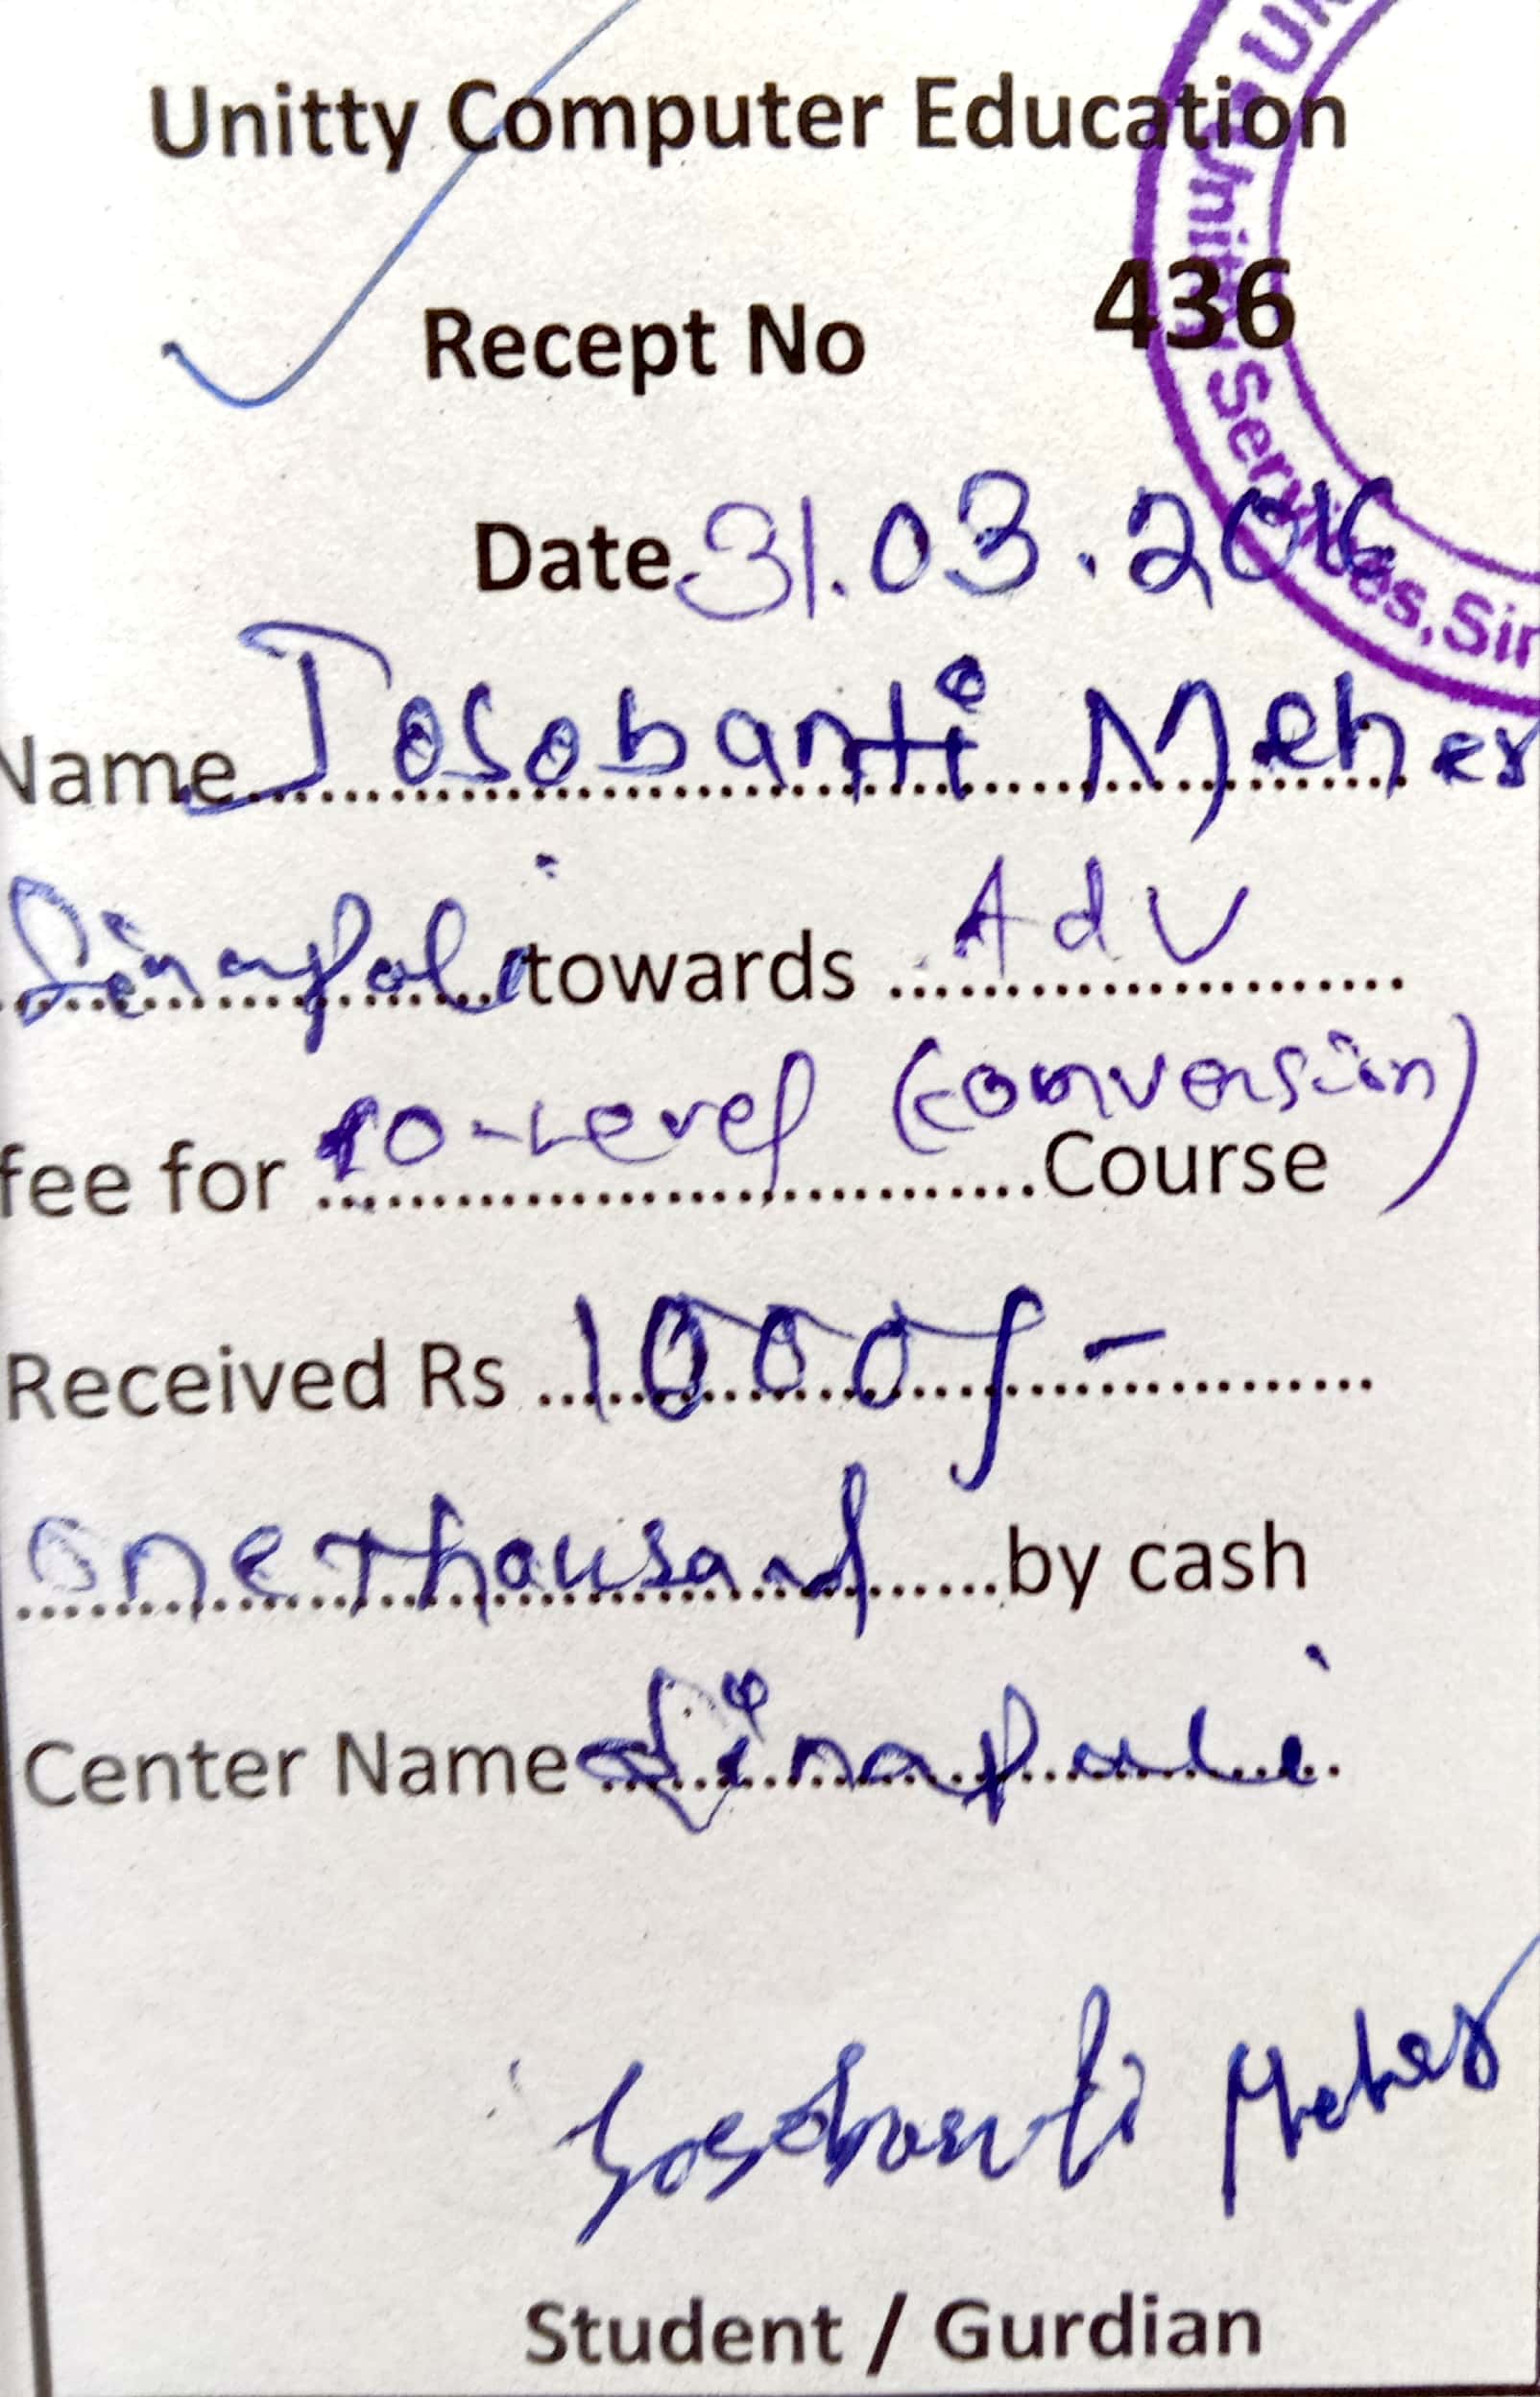 Unitty Computer Education
Recept No 436
Date 31.03.2016
Name Josobanti Meher
Sinapali towards Adv
fee for O-Level (conversion) Course
Received Rs 1000/-
One Thousand by cash
Center Name Sinapali
Meher
Student / Gurdian
Unitty Services, Sin